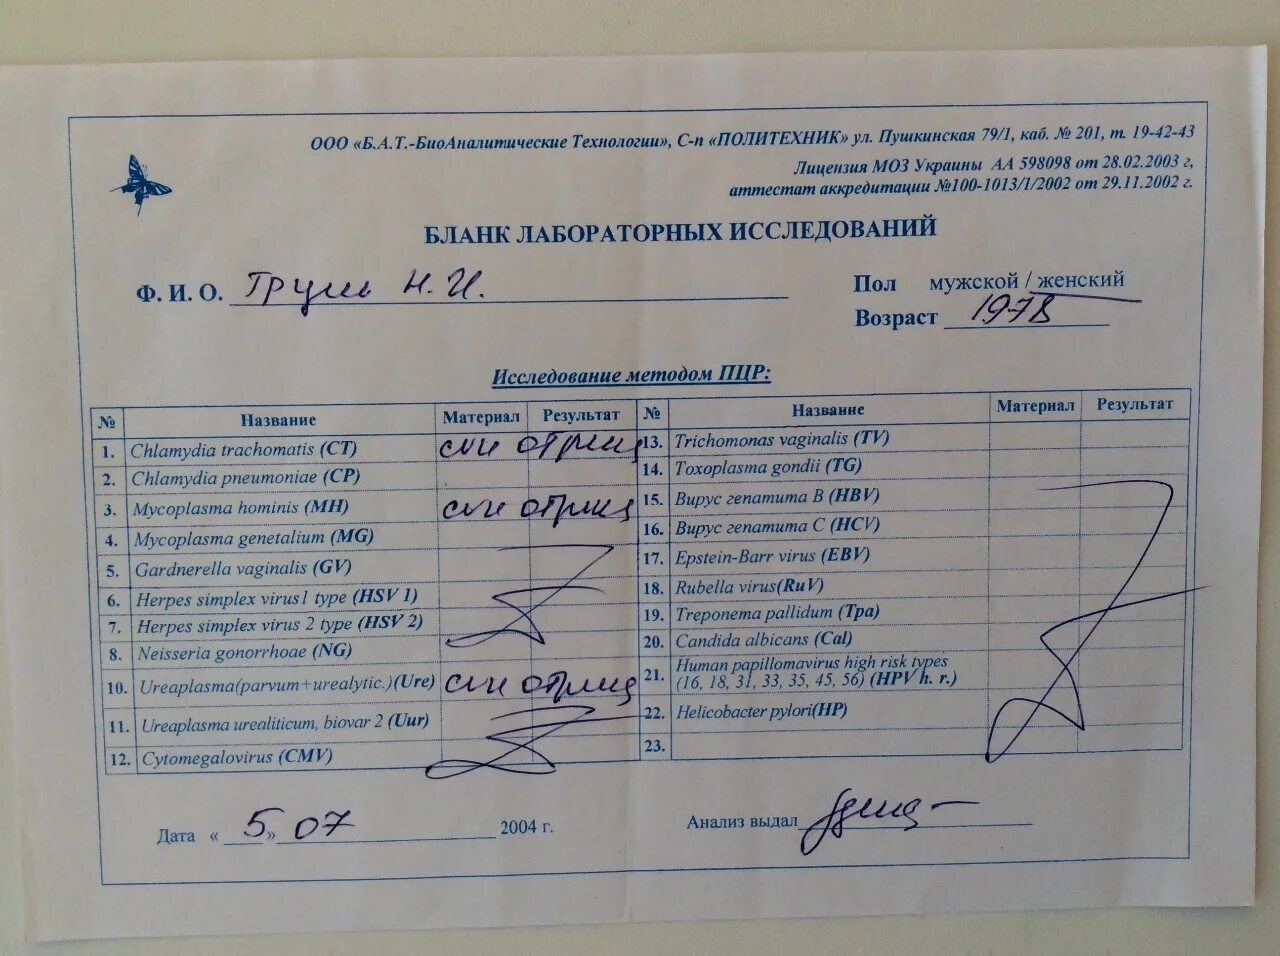 ООО «Б.А.Т.-БиоАналитические Технологии», С-п «ПОЛИТЕХНИК» ул. Пушкинская 79/1, каб. № 201, т. 19-42-43
Лицензия МОЗ Украины АА 598098 от 28.02.2003 г,
аттестат аккредитации №100-1013/1/2002 от 29.11.2002 г.
БЛАНК ЛАБОРАТОРНЫХ ИССЛЕДОВАНИЙ
Ф. И. О. Н.И. Пол мужской / женский
Возраст 1978
Исследование методом ПЦР:
№ Название Материал Результат № Название Материал Результат
1. Chlamydia trachomatis (CT) отриц 13. Trichomonas vaginalis (TV)
2. Chlamydia pneumoniae (CP) 14. Toxoplasma gondii (TG)
3. Mycoplasma hominis (MH) отриц 15. Вирус гепатита В (HBV)
4. Mycoplasma genetalium (MG) 16. Вирус гепатита С (HCV)
5. Gardnerella vaginalis (GV) 17. Epstein-Barr virus (EBV)
6. Herpes simplex virus1 type (HSV 1) 18. Rubella virus(RuV)
7. Herpes simplex virus 2 type (HSV 2) 19. Treponema pallidum (Tpa)
8. Neisseria gonorrhoae (NG) 20. Candida albicans (Cal)
10. Ureaplasma(parvum+urealytic.)(Ure) отриц 21. Human papillomavirus high risk types
(16, 18, 31, 33, 35, 45, 56) (HPV h. r.)
11. Ureaplasma urealiticum, biovar 2 (Uur) 22. Helicobacter pylori(HP)
12. Cytomegalovirus (CMV) 23.
Дата « 5 » 07 2004 г. Анализ выдал